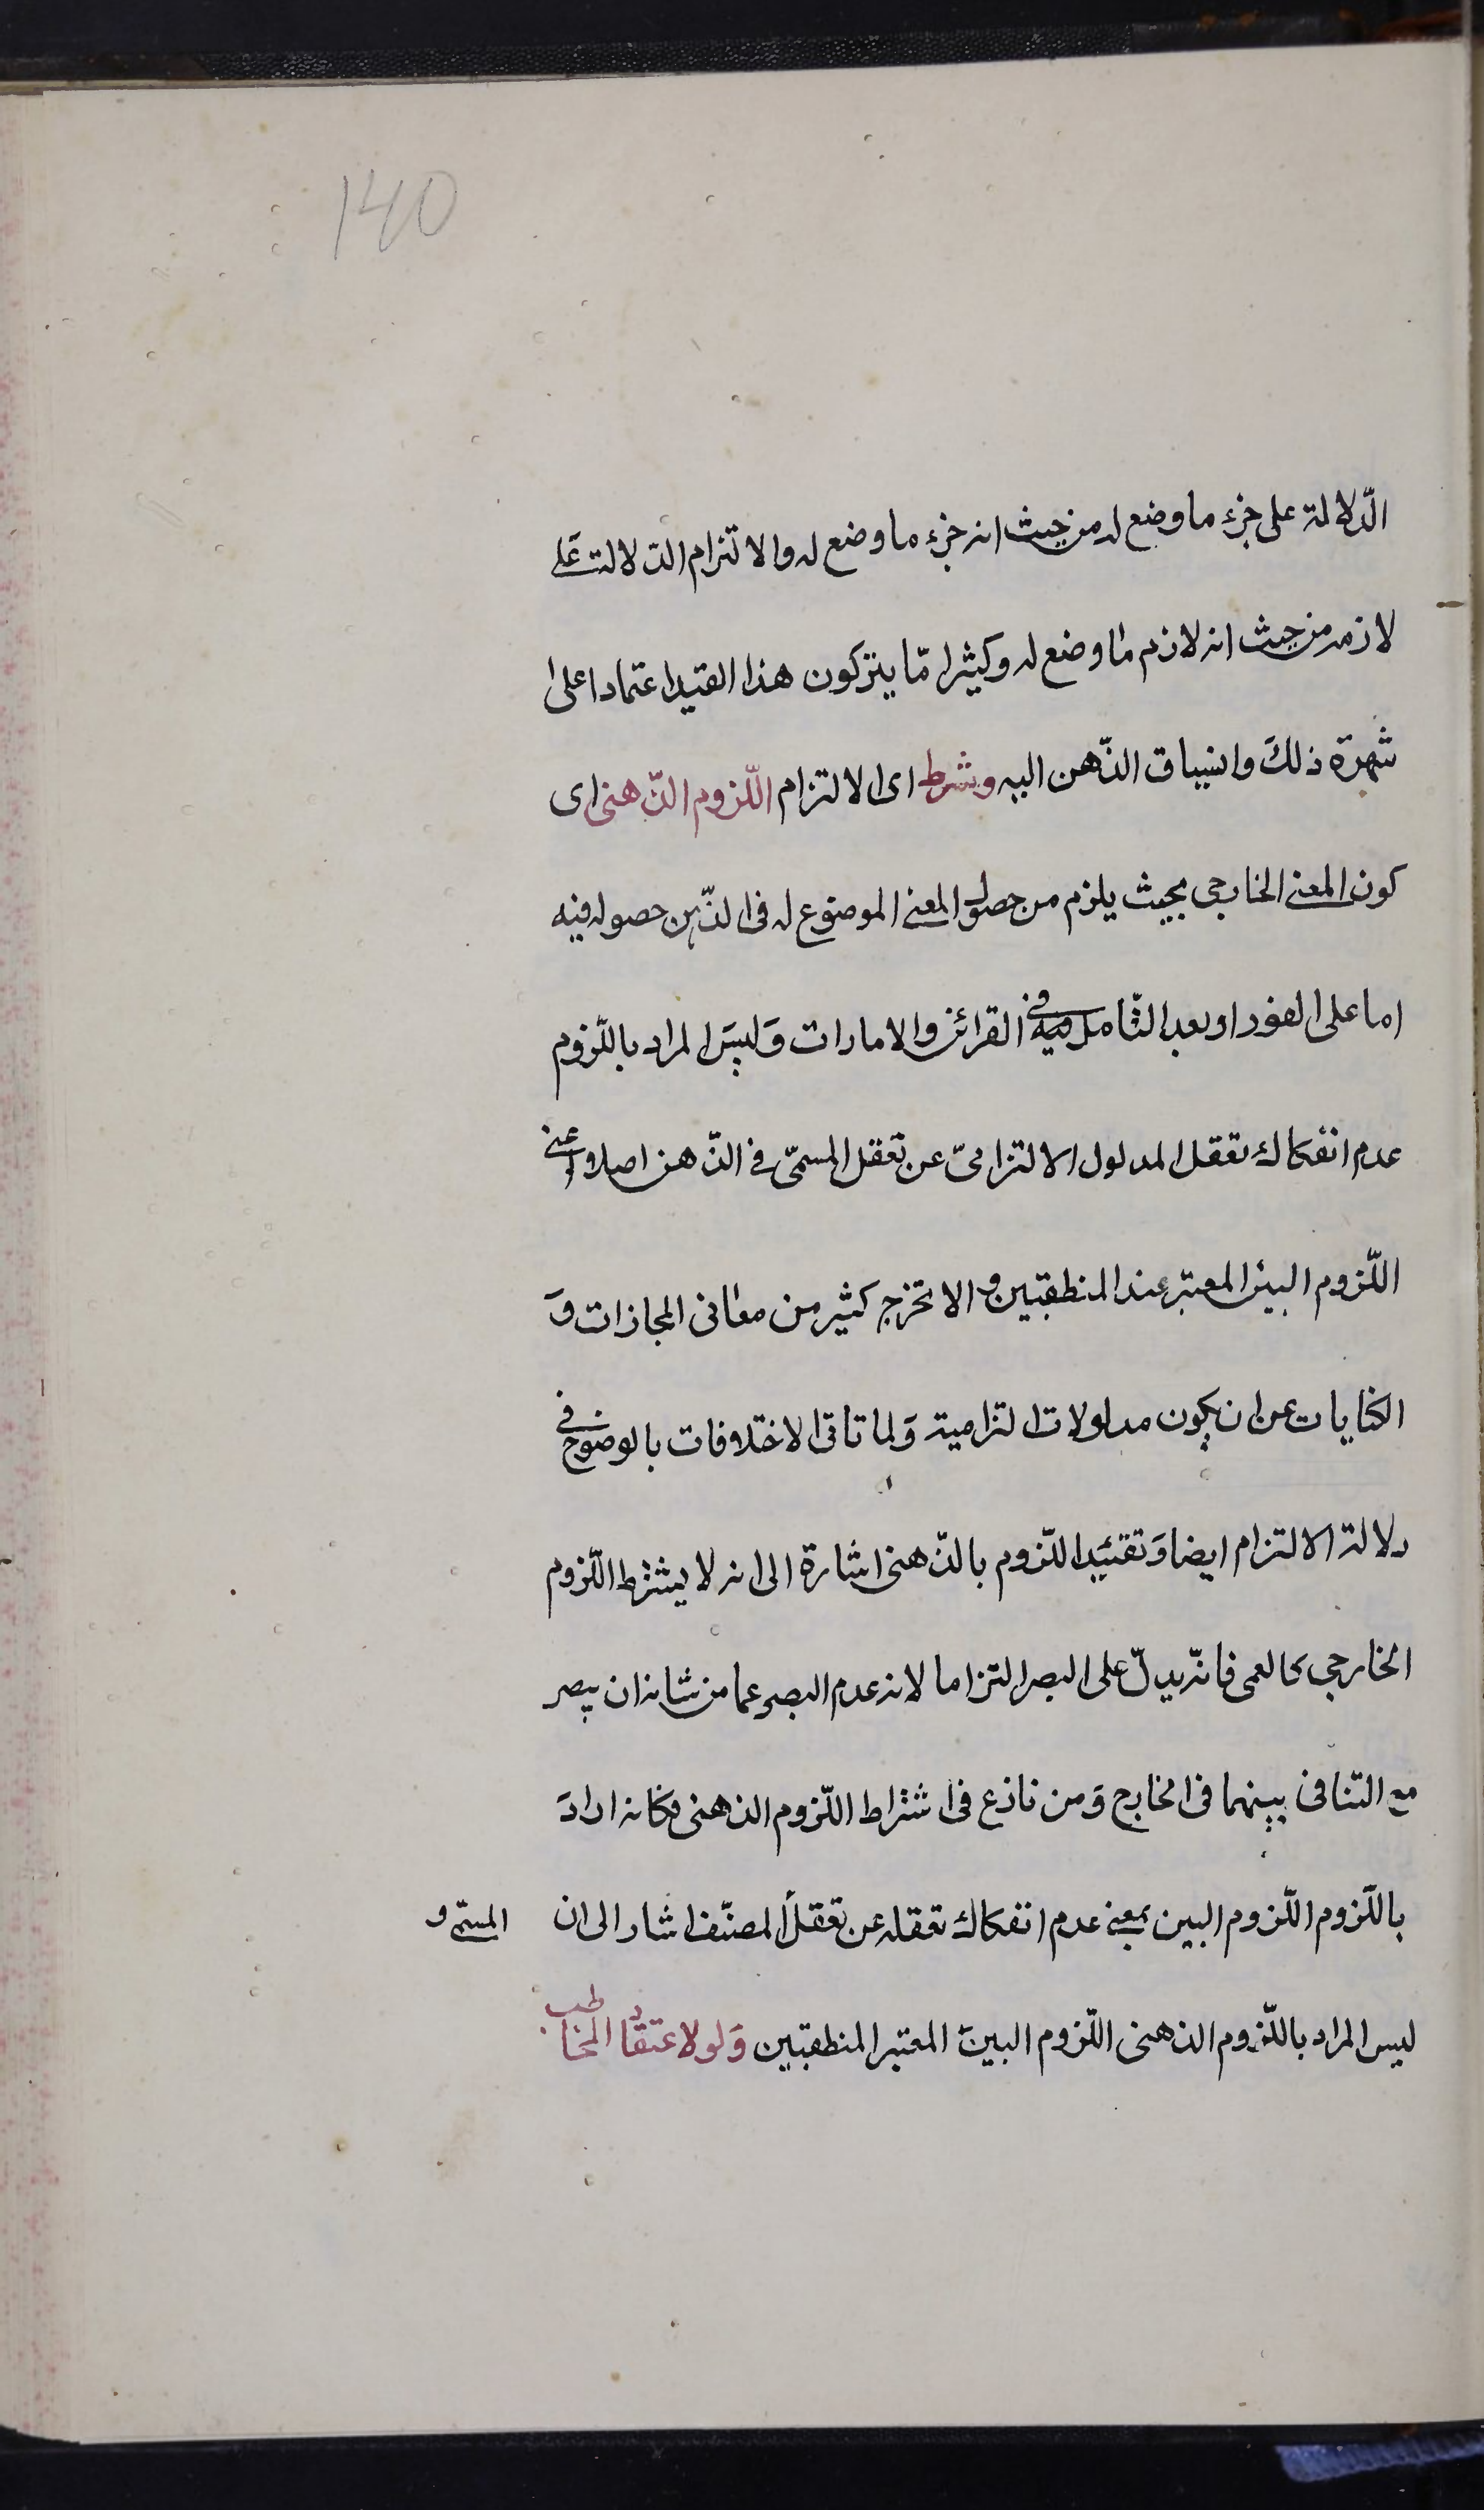 140
الدّلالة على جزء ما وضع له من حيث انه جزء ما وضع له والالتزام الدلالة على
لازمه من حيث انه لازم ما وضع له وكثيرا مّا يتركون هذا القيد اعتمادا على
شهرة ذلك وانسياق الذّهن اليه وشرطه اى الالتزام اللّزوم الذّهنى اى
كون المعنى الخارجى بحيث يلزم من حصول المعنى الموضوع له فى الذّهن حصوله فيه
اما على الفور او بعد التّأمل فيه فى القرائن والامارات وَليسَ المراد باللّزوم
عدم انفكاك تعقل المدلول الالتزامىّ عن تعقل المسمّى فى الذّهن اصلا اعنى
اللّزوم البيّن المعتبر عند المنطقيين والا لخرج كثير من معانى المجازات وَ
الكنايات عن ان يكون مدلولات التزامية وَلما تاتى الاختلافات بالوضوح فى
دلالة الالتزام ايضا وَتقييد اللّزوم بالذّهنى اشارة الى انه لا يشترط اللّزوم
الخارجى كالعمى فانّه يدلّ على البصر التزاما لانه عدم البصر عما من شانه ان يبصر
مع التنافى بينهما فى الخارج وَمن نازع فى اشتراط اللّزوم الذهنى فكانه ارادَ
باللّزوم اللّزوم البين بمعنى عدم انفكاك تعقله عن تعقل المصنّف اشار الى ان
المسمّى و
ليس المراد باللّزوم الذهنى اللّزوم البينَ المعتبر المنطقيين وَلو لاعتقاد المخاطب